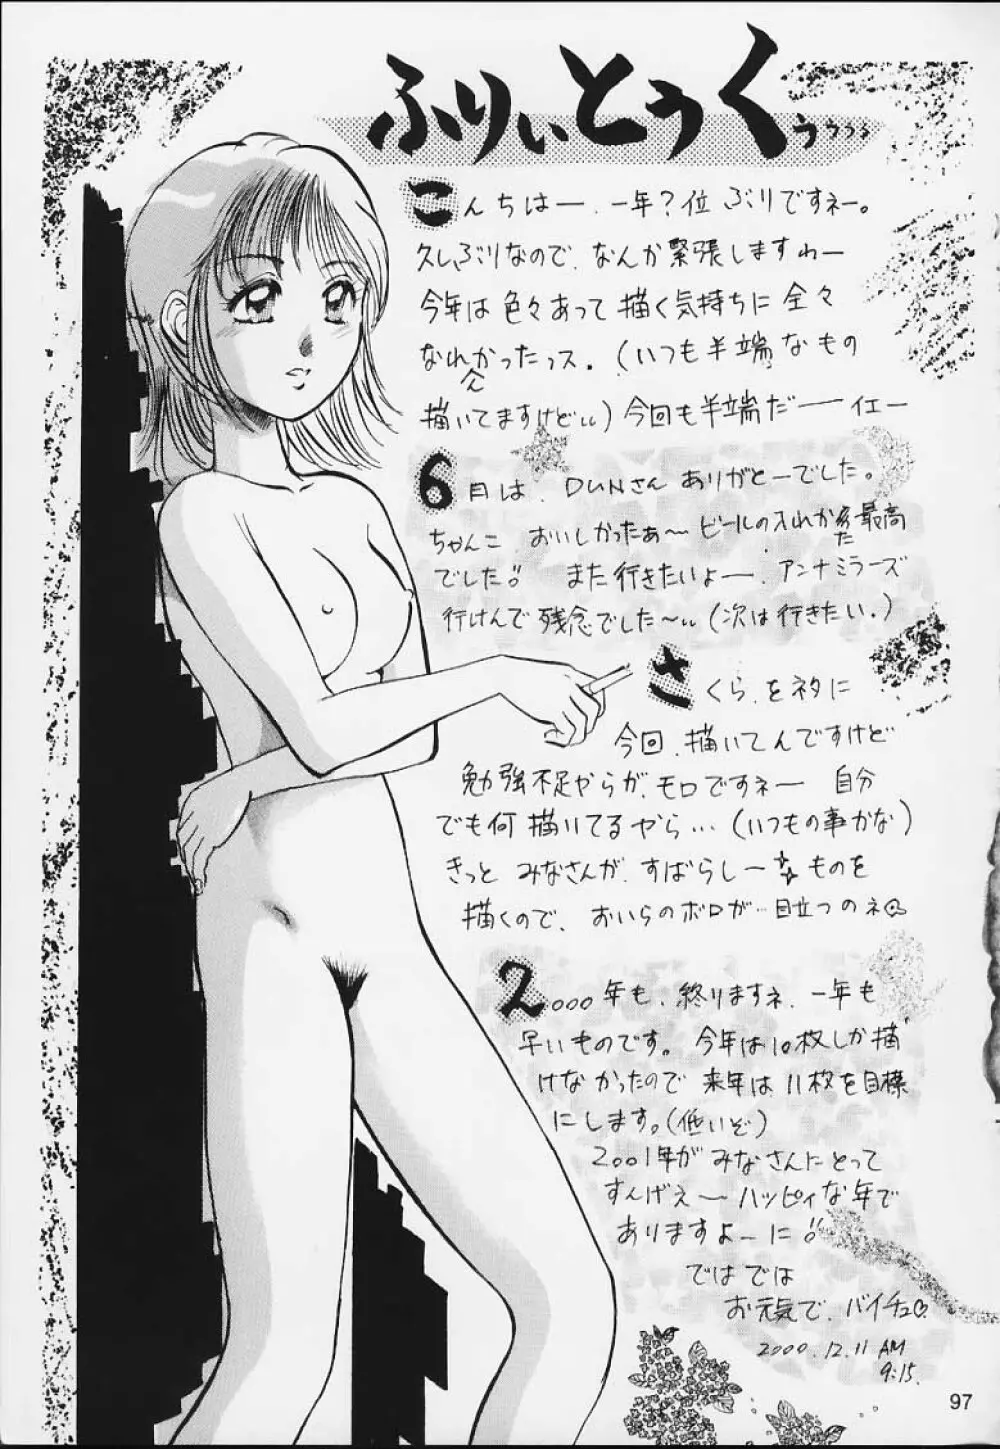 ふりぃとうくぅぅぅぅ
こんちはー、一年?位ぶりですネー。
久しぶりなので、なんか緊張しますわー
今年は色々あって描く気持ちに全々
なれなかったっス。(いつも半端なもの
描いてますけど〃)今回も半端だーーイエー
6月は、DUNさんありがとーでした。
ちゃんこ おいしかったぁ〜ビールの入れかたが最高
でした〃 また行きたいよー、アンナミラーズ
行けんで残念でした〜〃(次は行きたい。)
さくら、をネタに
今回、描いてんですけど
勉強不足やらが、モロですネー 自分
でも何描いてるやら…(いつもの事かな)
きっと みなさんが、すばらしーものを
描くので、おいらのボロが…目立つのネ
2000年も、終りますネ、一年も
早いものです。今年は10枚しか描
けなかったので来年は11枚を目標
にします。(低いぞ)
2001年がみなさんにとって
すんげえーハッピィな年で
ありますよーに〃
ではでは
お元気で、バイチュ♡
2000.12.11 AM
9:15.
97